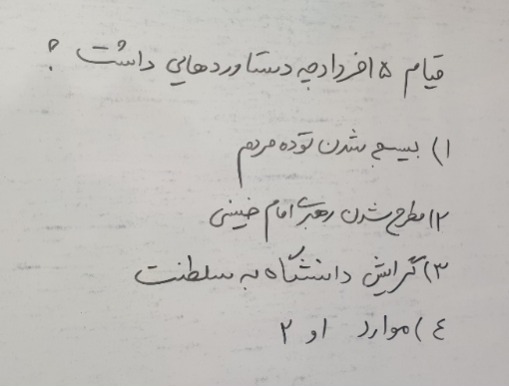 قیام ۱۵ خرداد چه دستاوردهایی داشت ؟
۱) بسیج شدن توده مردم
۲) مطرح شدن رهبری امام خمینی
۳) گرایش دانشگاه به سلطنت
۴) موارد ۱ و ۲